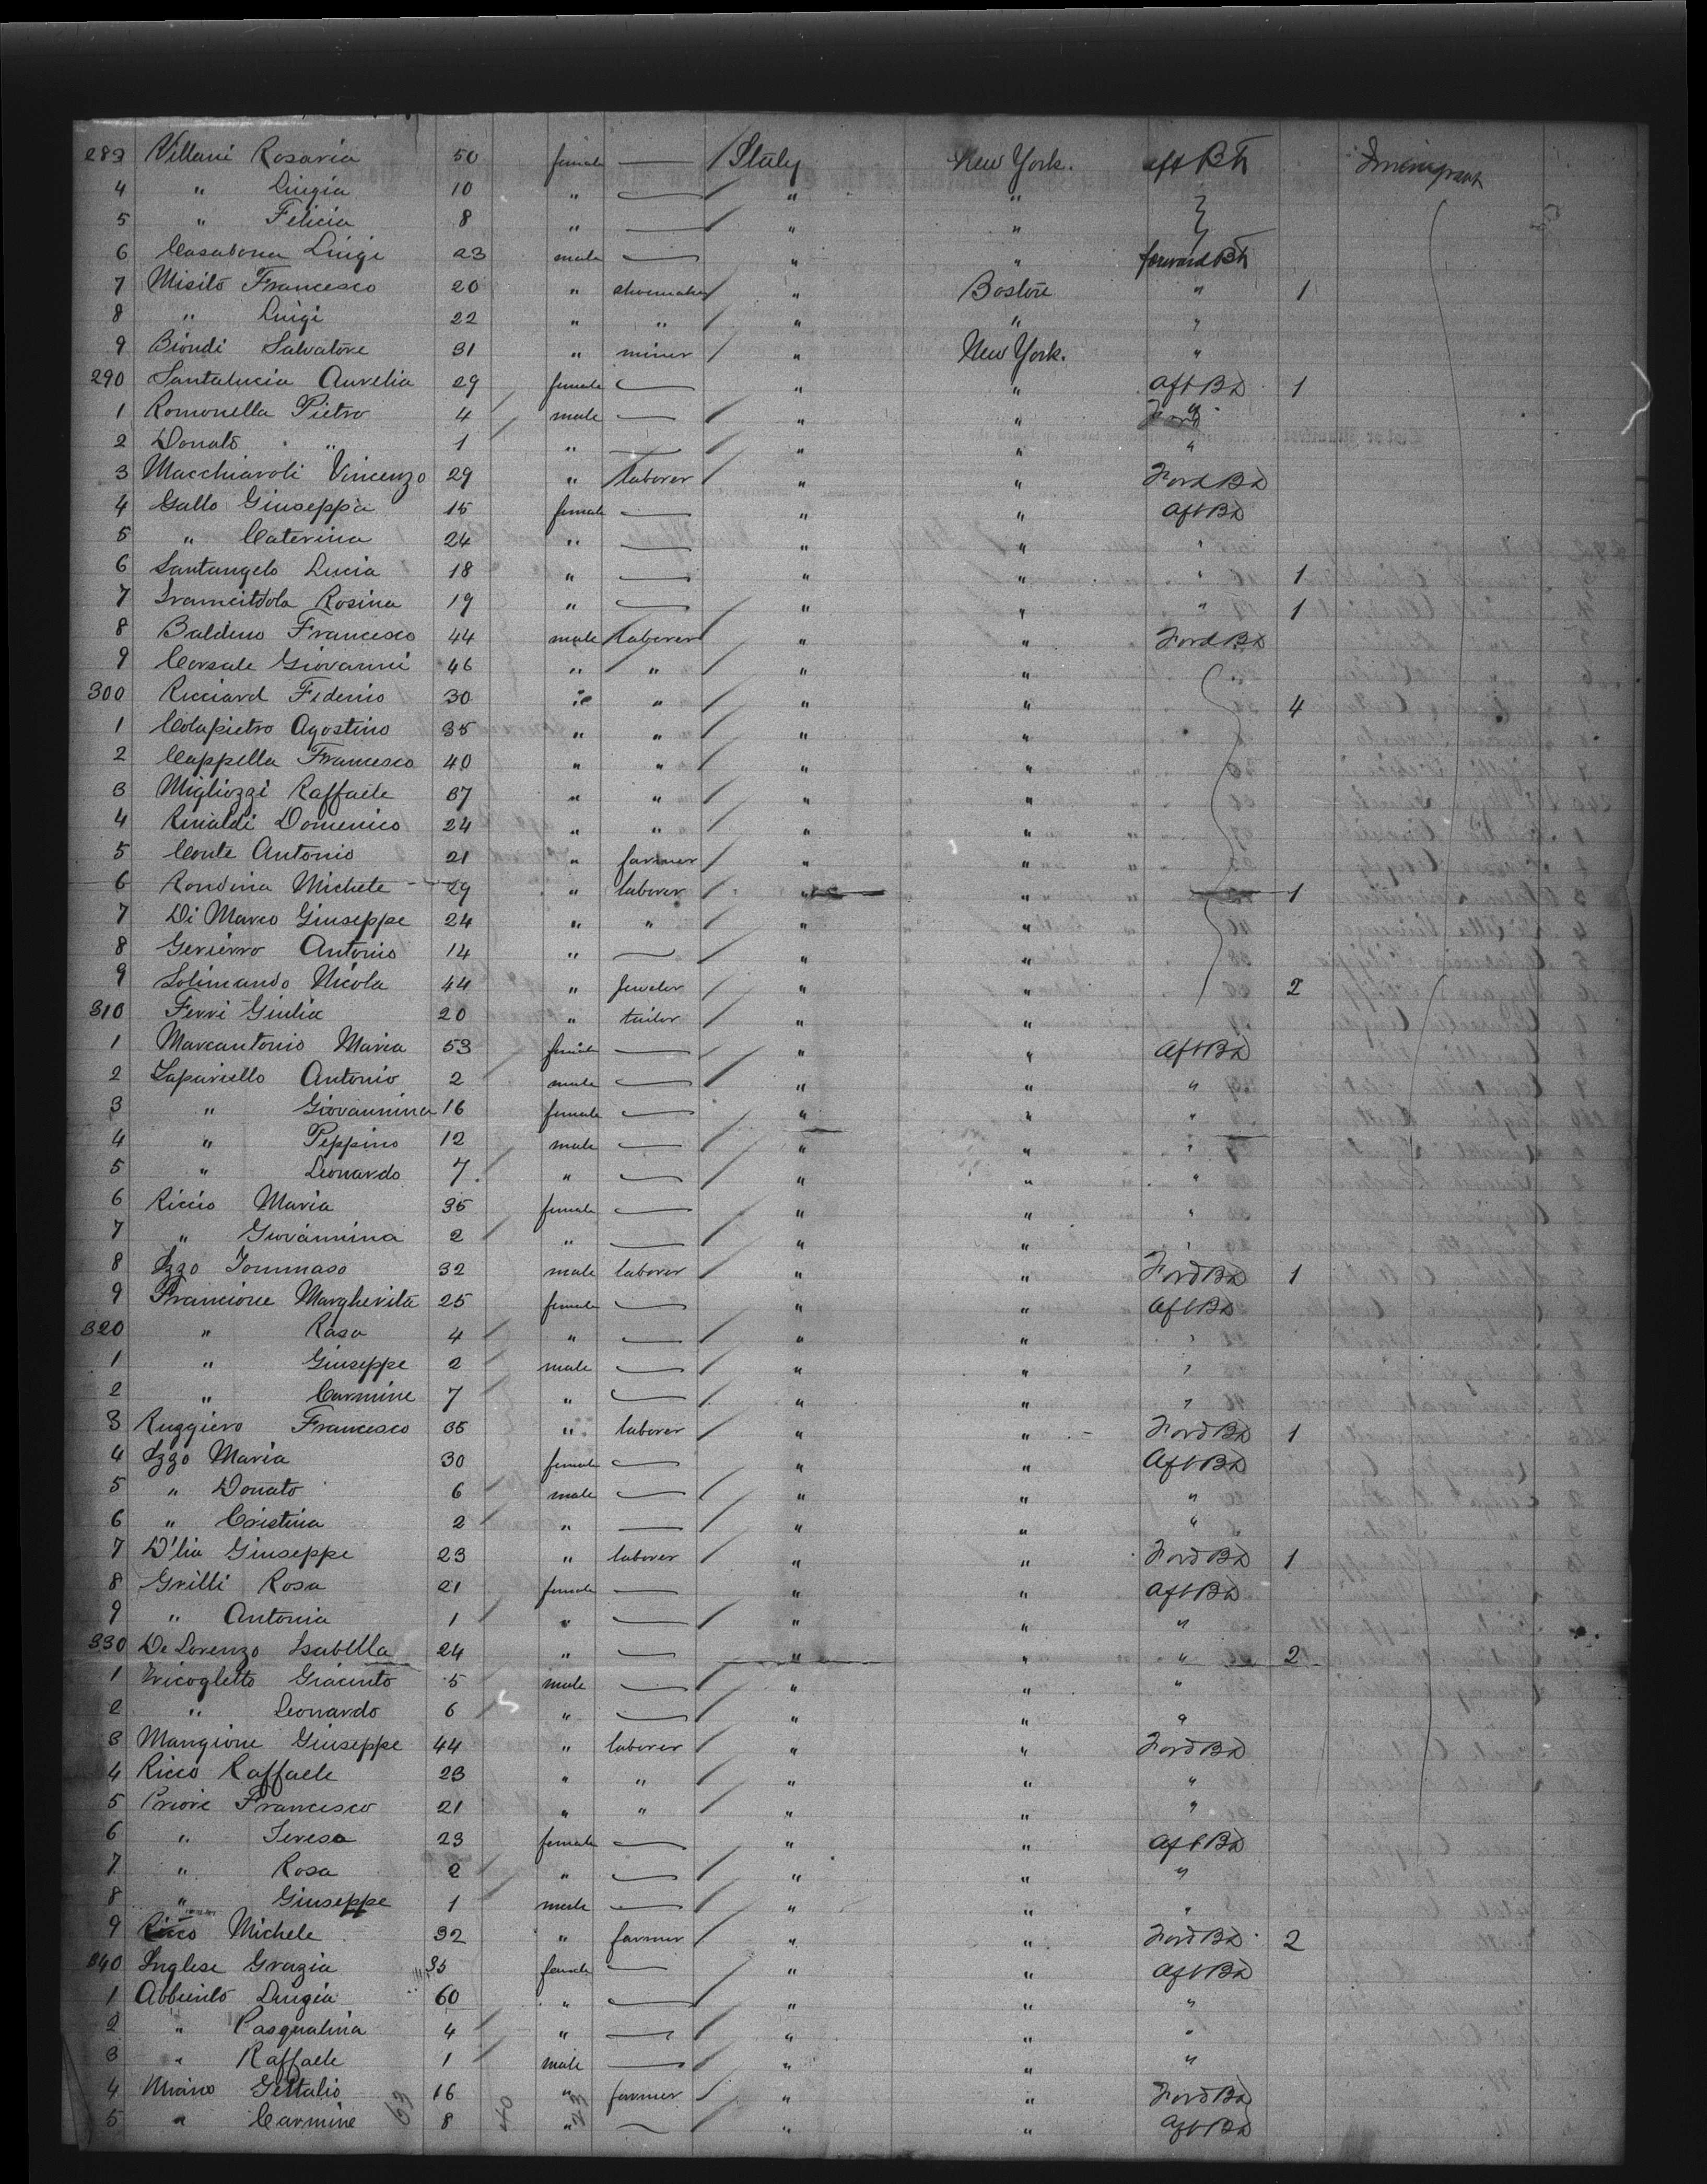 283 Villani Rosaria 50 female — / Italy New York. aft Bh Immigrant
4 " Luigia 10 " — / " "
5 " Felicia 8 " — / " "
6 Casabona Luigi 23 male — " " forward Bh
7 Misito Francesco 20 " shoemaker / " Boston " 1
8 " Luigi 22 " " / " " "
9 Biondi Salvatore 31 " miner / " New York. "
290 Santalucia Aurelia 29 female — " " Aft Bd 1
1 Romonella Pietro 4 male — / " " "
2 Donato " 1 " — " " "
3 Macchiaroli Vincenzo 29 " laborer / " " Ford Bd
4 Gallo Giuseppa 15 female — " " Aft Bd
5 " Caterina 24 " — " " "
6 Santangelo Lucia 18 " — " " " 1
7 Rosina 19 " — " " " 1
8 Baldino Francesco 44 male laborer " " Ford Bd
9 Corsale Giovanni 46 " " / " "
300 Ricciard Federico 30 " " / " " 4
1 Colapietro Agostino 35 " " / " "
2 Cappella Francesco 40 " " / " "
3 Migliozzi Raffaele 37 " " / " "
4 Rinaldi Domenico 24 " " / " "
5 Conte Antonio 21 " farmer / " "
6 Rondina Michele 29 " laborer / " " 1
7 Di Marco Giuseppe 24 " " / " "
8 Antonio 14 " — / " "
9 Solimando Nicola 44 " jeweler / " " 2
310 Ferri Giulia 20 " tailor / " "
1 Marcantonio Maria 53 female — " " Aft Bd
2 Lapariello Antonio 2 male — / " " "
3 " Giovannina 16 female — " " "
4 " Peppino 12 male — / " " "
5 " Leonardo 7 " — / " " "
6 Riccio Maria 35 female — " " "
7 " Giovannina 2 " — / " " "
8 Izzo Tommaso 32 male laborer / " " Ford Bd 1
9 Francione Margherita 25 female — " " Aft Bd
320 " Rosa 4 " — / " " "
1 " Giuseppe 2 male — / " " "
2 " Carmine 7 " — / " " "
3 Ruggiero Francesco 35 " laborer / " " Ford Bd 1
4 Izzo Maria 30 female — " " Aft Bd
5 " Donato 6 male — / " " "
6 " Cristina 2 " — / " " "
7 D'lia Giuseppe 23 " laborer / " " Ford Bd 1
8 Grilli Rosa 21 female — " " Aft Bd
9 " Antonia 1 " — / " " "
330 De Lorenzo Isabella 24 " — " " " 2
1 Giacinto 5 male — / " " "
2 " Leonardo 6 " — / " " "
3 Mangione Giuseppe 44 " laborer / " " Ford Bd
4 Ricco Raffaele 23 " " / " " "
5 Priore Francesco 21 " " / " " "
6 " Teresa 23 female — " " Aft Bd
7 " Rosa 2 " — / " " "
8 " Giuseppe 1 male — / " " "
9 Ricco Michele 32 " farmer / " " Ford Bd 2
340 Inglese Grazia 35 female — " " Aft Bd
1 Luigia 60 " — / " " "
2 " Pasqualina 4 " — / " " "
3 " Raffaele 1 male — / " " "
4 16 " farmer / " " Ford Bd
5 " Carmine 8 " — " " Aft Bd
63 40 23